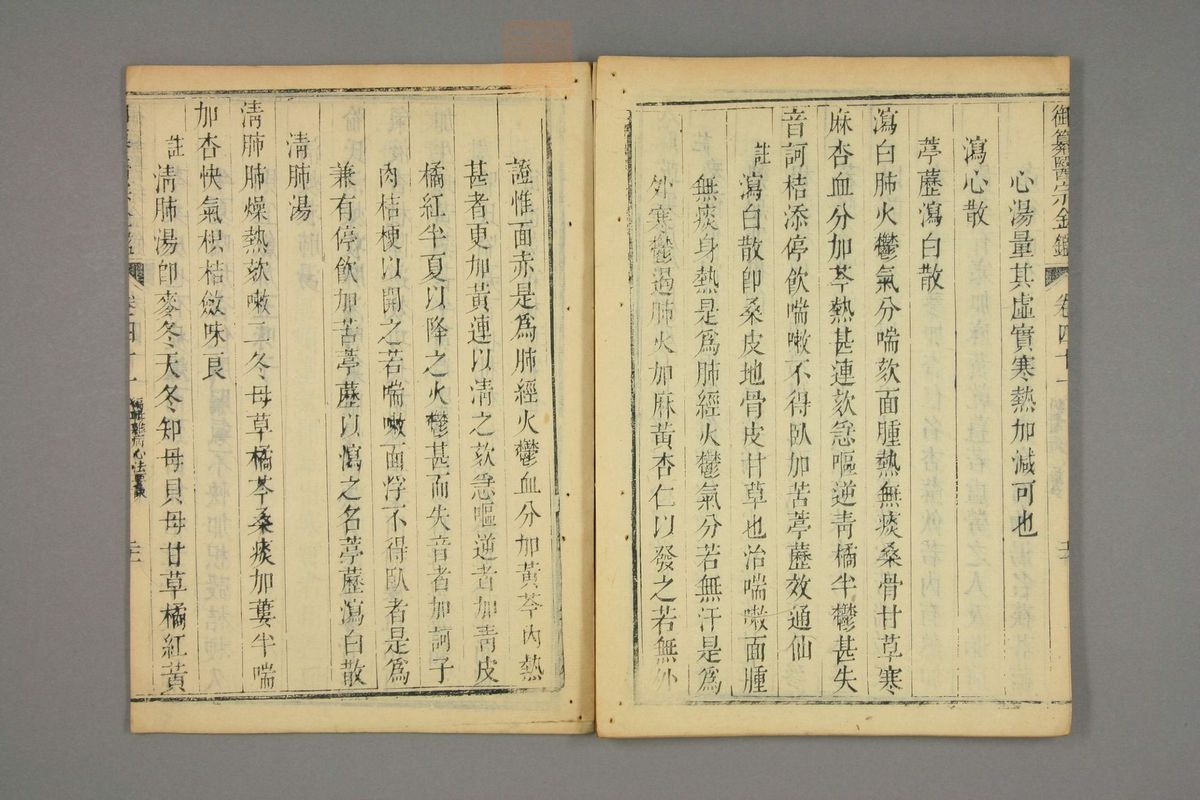 御纂醫宗金鑑 卷四十一
心湯量其虛實寒熱加減可也
瀉心散
葶藶瀉白散
瀉白肺火鬱氣分喘欬面腫熱無痰桑骨甘草寒
麻杏血分加芩熱甚連欬急嘔逆青橘半鬱甚失
音訶桔添停飲喘嗽不得臥加苦葶藶效通仙
註 瀉白散卽桑皮地骨皮甘草也治喘嗽面腫
無痰身熱是爲肺經火鬱氣分若無汗是爲
外寒鬱遏肺火加麻黃杏仁以發之若無外
證惟面赤是爲肺經火鬱血分加黃芩內熱
甚者更加黃連以淸之欬急嘔逆者加靑皮
橘紅半夏以降之火鬱甚而失音者加訶子
肉桔梗以開之若喘嗽面浮不得臥者是爲
兼有停飮加苦葶藶以瀉之名葶藶瀉白散
淸肺湯
淸肺肺燥熱欬嗽二冬母草橘芩桑痰加蔞半喘
加杏快氣枳桔斂味良
註 淸肺湯卽麥冬天冬知母貝母甘草橘紅黃
卷四十一 雜病心法要訣